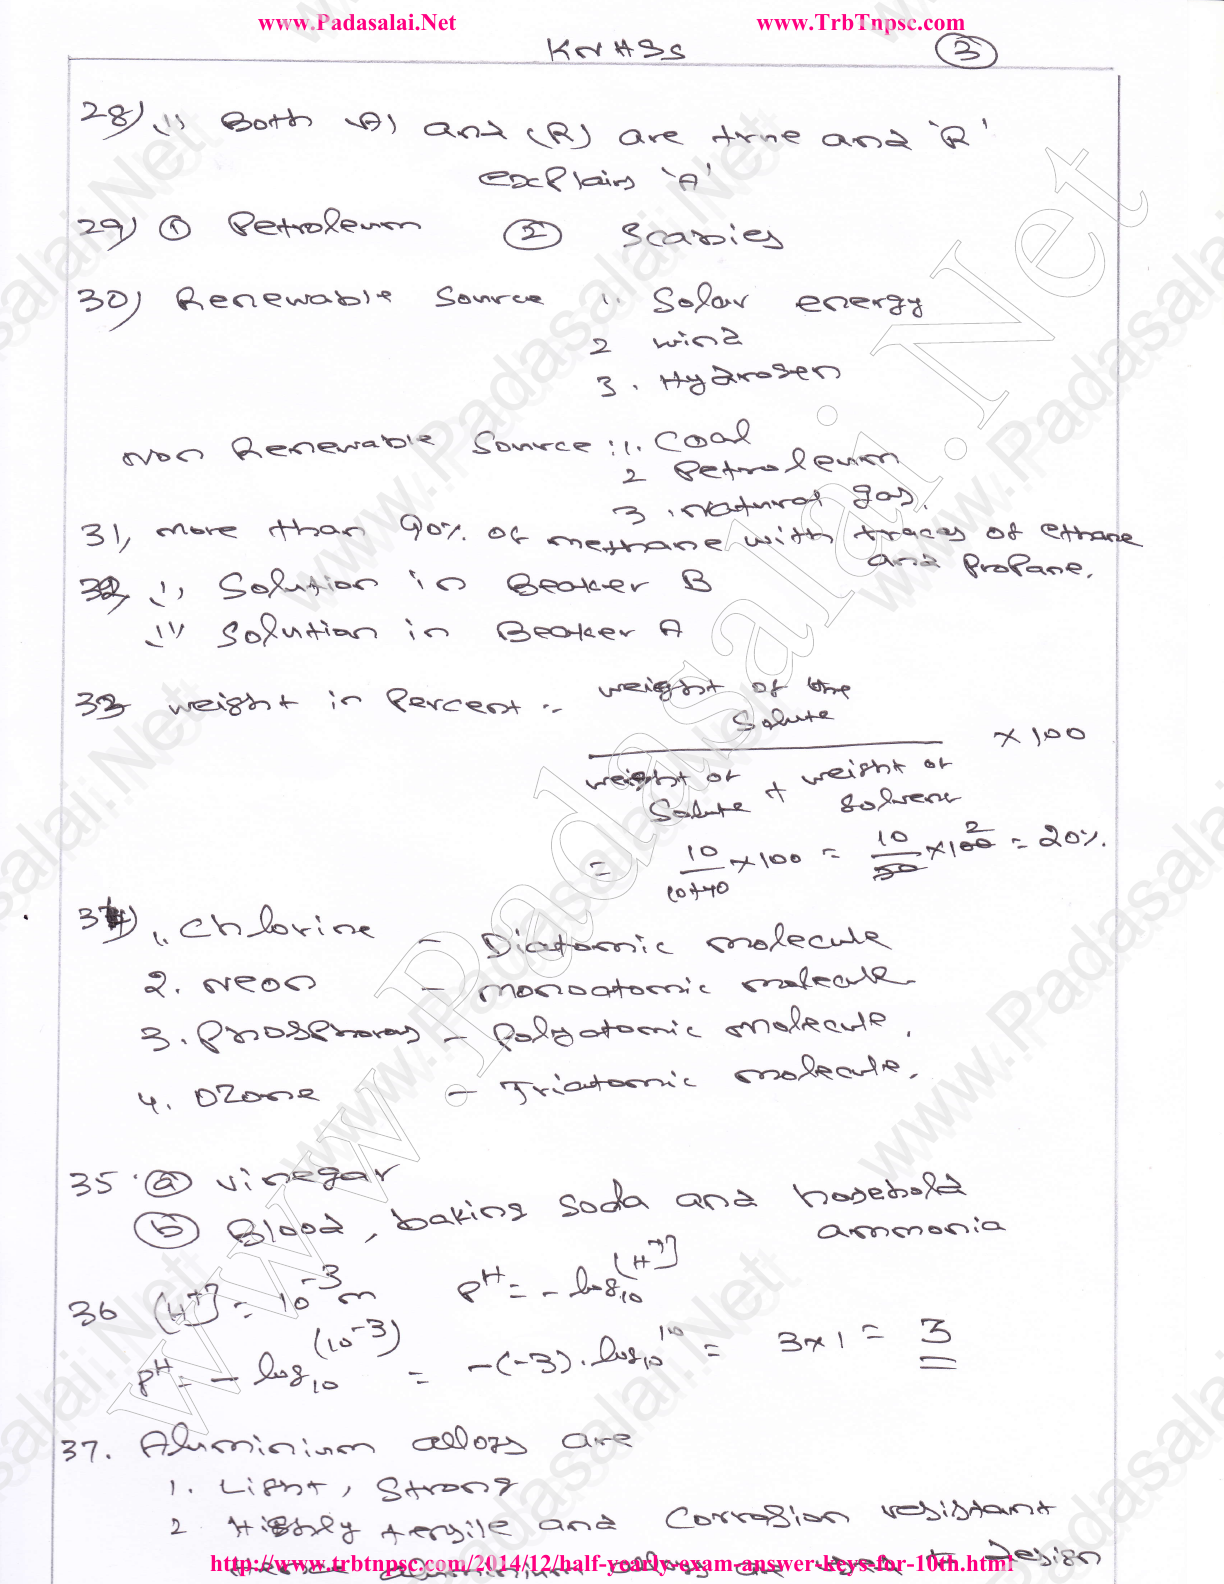 www.Padasalai.Net www.TrbTnpsc.com
KNHSS 3
28) 1) Both (A) and (R) are true and 'R'
explains 'A'
29) 1 Petroleum 2 Scabies
30) Renewable Source 1. Solar energy
2 wind
3. Hydrogen
Non Renewable Source : 1. Coal
2 Petroleum
3. Natural gas.
31, more than 90% of methane with traces of ethane
and Propane.
32, 1) Solution in Beaker B
1) Solution in Beaker A
33 weight in Percent :- weight of the
Solute
x 100
weight of + weight of
Solute Solvent
= 10/10+40 x 100 = 10/50 x 100 2 = 20%.
34) 1. Chlorine - Diatomic molecule
2. Neon - monoatomic molecule.
3. Phosphorous - Polyatomic molecule.
4. Ozone - Triatomic molecule.
35. a vinegar
b Blood, baking soda and household
ammonia
36 [H+] = 10^-3 m PH = - log10 [H+]
PH = - log10 (10^-3) = -(-3) . log10 10 = 3x1 = 3
37. Aluminium alloys are
1. Light, Strong
2 Highly tensile and Corrosion resistant
http://www.trbtnpsc.com/2014/12/half-yearly-exam-answer-keys-for-10th.html
aluminium alloys are used to design
www.Padasalai.Net